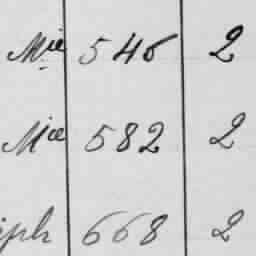 Mie 546 2
Mie 582 2
iph 668 2